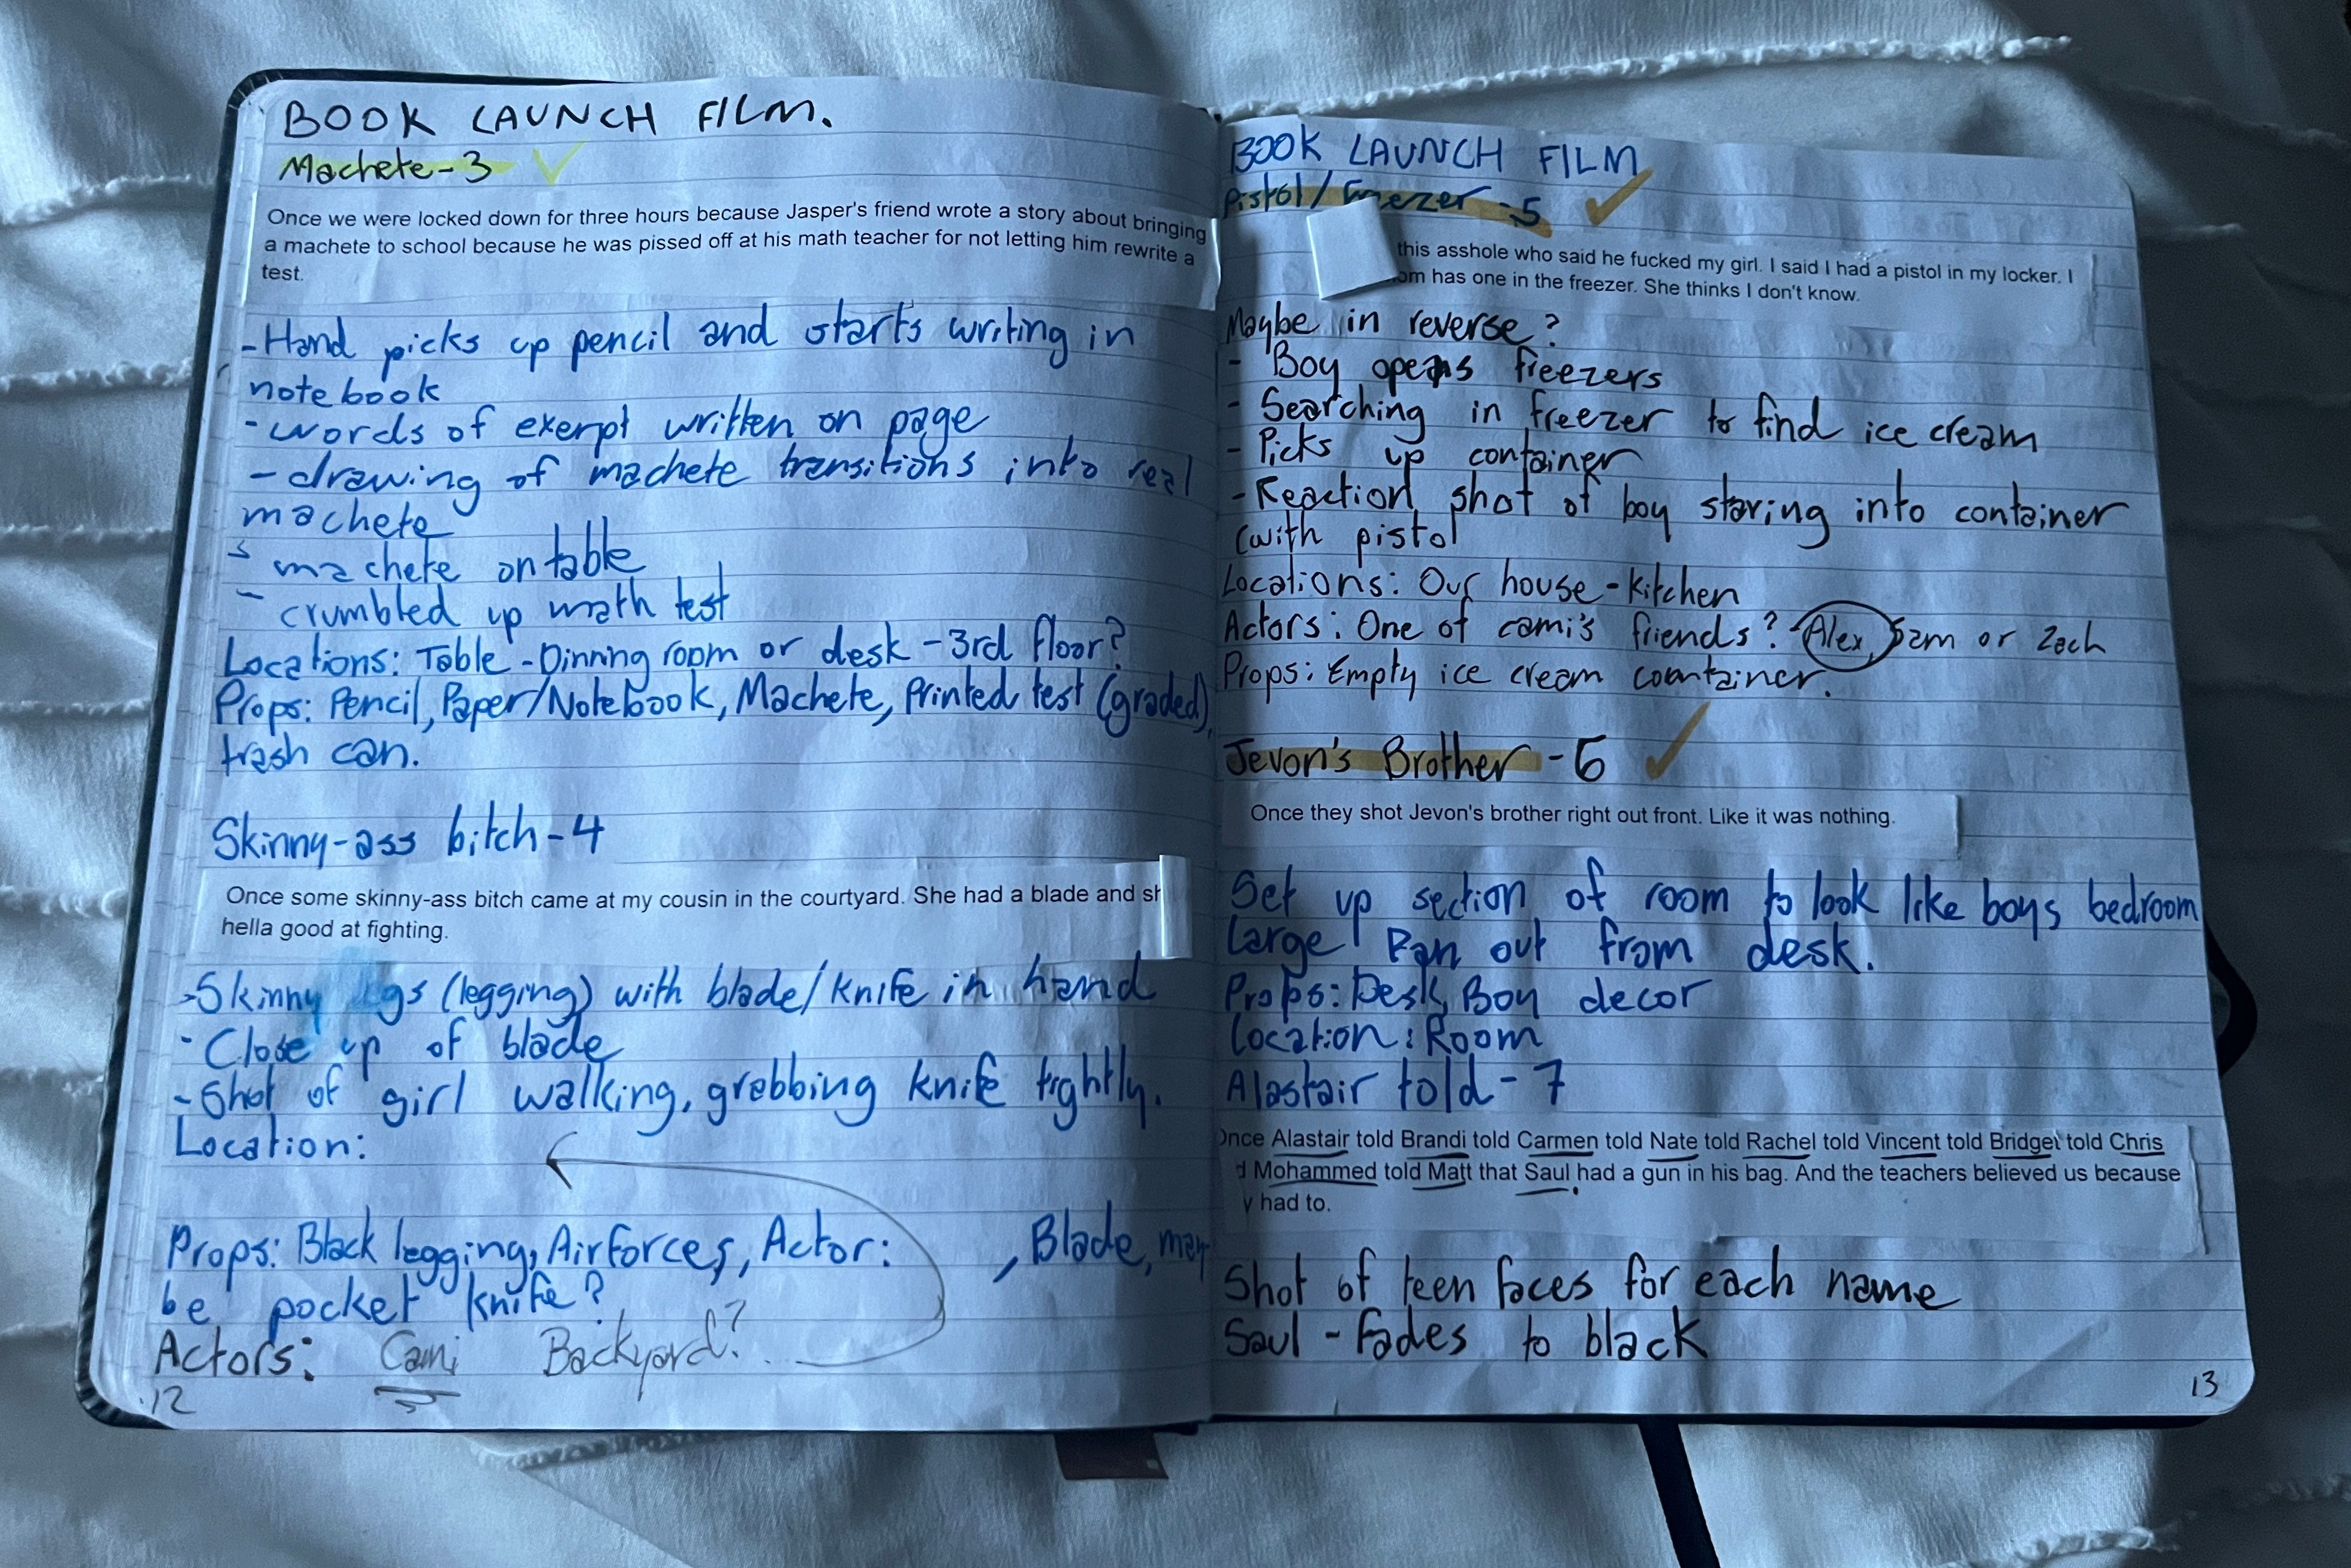 BOOK LAUNCH FILM.
Machete-3 ✓
Once we were locked down for three hours because Jasper's friend wrote a story about bringing
a machete to school because he was pissed off at his math teacher for not letting him rewrite a
test.
-Hand picks up pencil and starts writing in
notebook
-words of exerpt written on page
-drawing of machete transitions into real
machete
- machete on table
- crumbled up math test
Locations: Table-Dinning room or desk-3rd floor?
Props: Pencil, Paper/Notebook, Machete, Printed test (graded),
trash can.
Skinny-ass bitch-4
Once some skinny-ass bitch came at my cousin in the courtyard. She had a blade and sh
hella good at fighting.
-Skinny legs (legging) with blade/knife in hand
- Close up of blade
-Shot of girl walking, grabbing knife tightly.
Location:
Props: Black legging, Airforces, Actor: , Blade, may
be pocket knife?
Actors: Cami Backyard?
12
BOOK LAUNCH FILM
Pistol/Freezer-5 ✓
this asshole who said he fucked my girl. I said I had a pistol in my locker. I
om has one in the freezer. She thinks I don't know.
Maybe in reverse?
- Boy opens freezers
- Searching in freezer to find ice cream
- Picks up container
-Reaction shot of boy staring into container
(with pistol
Locations: Our house-kitchen
Actors: One of cami's friends? Alex, Sam or Zach
Props: Empty ice cream countainer.
Jevon's Brother-6 ✓
Once they shot Jevon's brother right out front. Like it was nothing.
Set up section of room to look like boys bedroom
Large Pan out from desk.
Props: Desk, Boy decor
Location: Room
Alastair told-7
Once Alastair told Brandi told Carmen told Nate told Rachel told Vincent told Bridget told Chris
d Mohammed told Matt that Saul had a gun in his bag. And the teachers believed us because
y had to.
Shot of teen faces for each name
Saul - fades to black
13